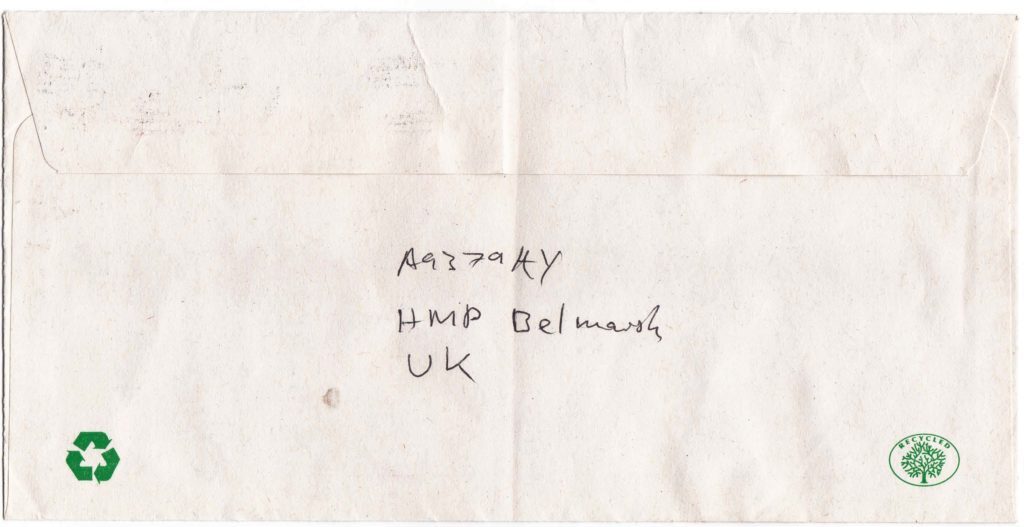 A9379AY
HMP Belmarsh
UK
RECYCLED